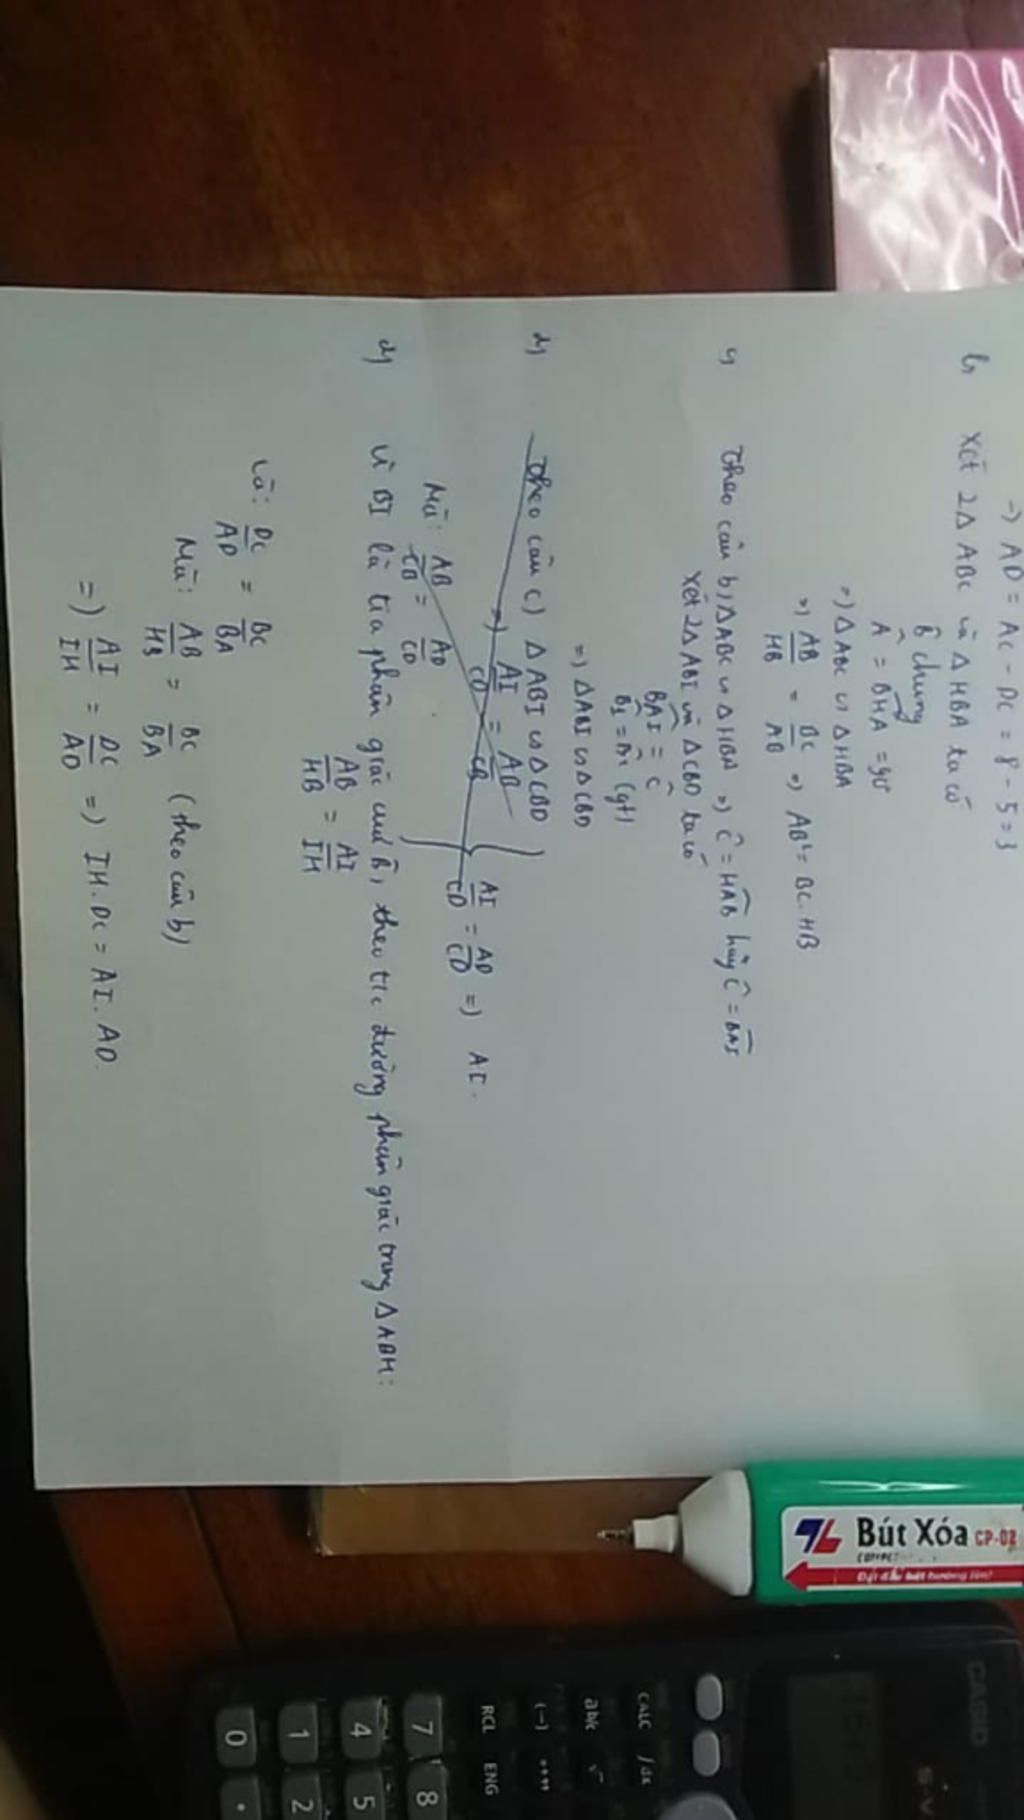 =) AD = AC - DC = 8 - 5 = 3
b, Xét 2Δ ABC và Δ HBA ta có
B̂ chung
Â = BĤA = 90°
=) Δ ABC ∽ Δ HBA
=) AB/HB = BC/AB =) AB² = BC. HB
c, Theo câu b) Δ ABC ∽ Δ HBA =) Ĉ = HÂB hay Ĉ = BÂI
Xét 2Δ ABI và Δ CBD ta có
BÂI = Ĉ
(gt)
=) Δ ABI ∽ Δ CBD
d, Theo câu c) Δ ABI ∽ Δ CBD
=) AI/CD = AB/CB
Mà: AB/CB = AD/CD
AI/CD = AD/CD =) AI.
d, Vì BI là tia phân giác của B̂, theo t/c đường phân giác trong Δ ABH:
AB/HB = AI/IH
Và: DC/AD = BC/BA
Mà: AB/HB = BC/BA (theo câu b)
=) AI/IH = DC/AD =) IH. DC = AI. AD.
Bút Xóa CP-02
CASIO
CALC ∫dx
abk √
(-) °'"
RCL ENG
7 8
4 5
1 2
0 .